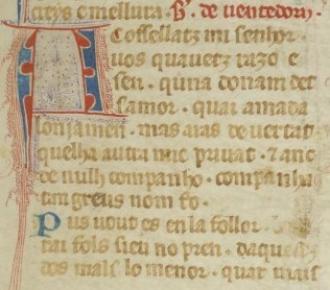 creys e mellura. B. de uentedorn.
A cossellatz mi senhor.
uos quauetz razo e
sen. quna donam det
samor. quai amada
lonjamen. mas aras de uertat
quelha autra mic priuat. ⁊ anc
de nulh companho. companha
tan greus nom fo.
Pus uout es en la follor.
fai fols sieu no pren. daquestz
dos mals lo menor. quar mais